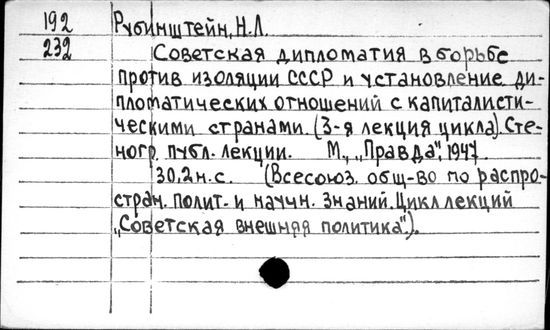 192 Рубинштейн, Н.Л.
232 Советская дипломатия в борьбе
против изоляции СССР и установление ди-
пломатических отношений с капиталисти-
ческими странами. (3-я лекция цикла). Сте-
ногр. публ. лекции. М., „Правда", 1947.
30,2 н.с. (Всесоюз. общ-во по распро-
стран. полит. и научн. знаний. Цикл лекций
„Советская внешняя политика").